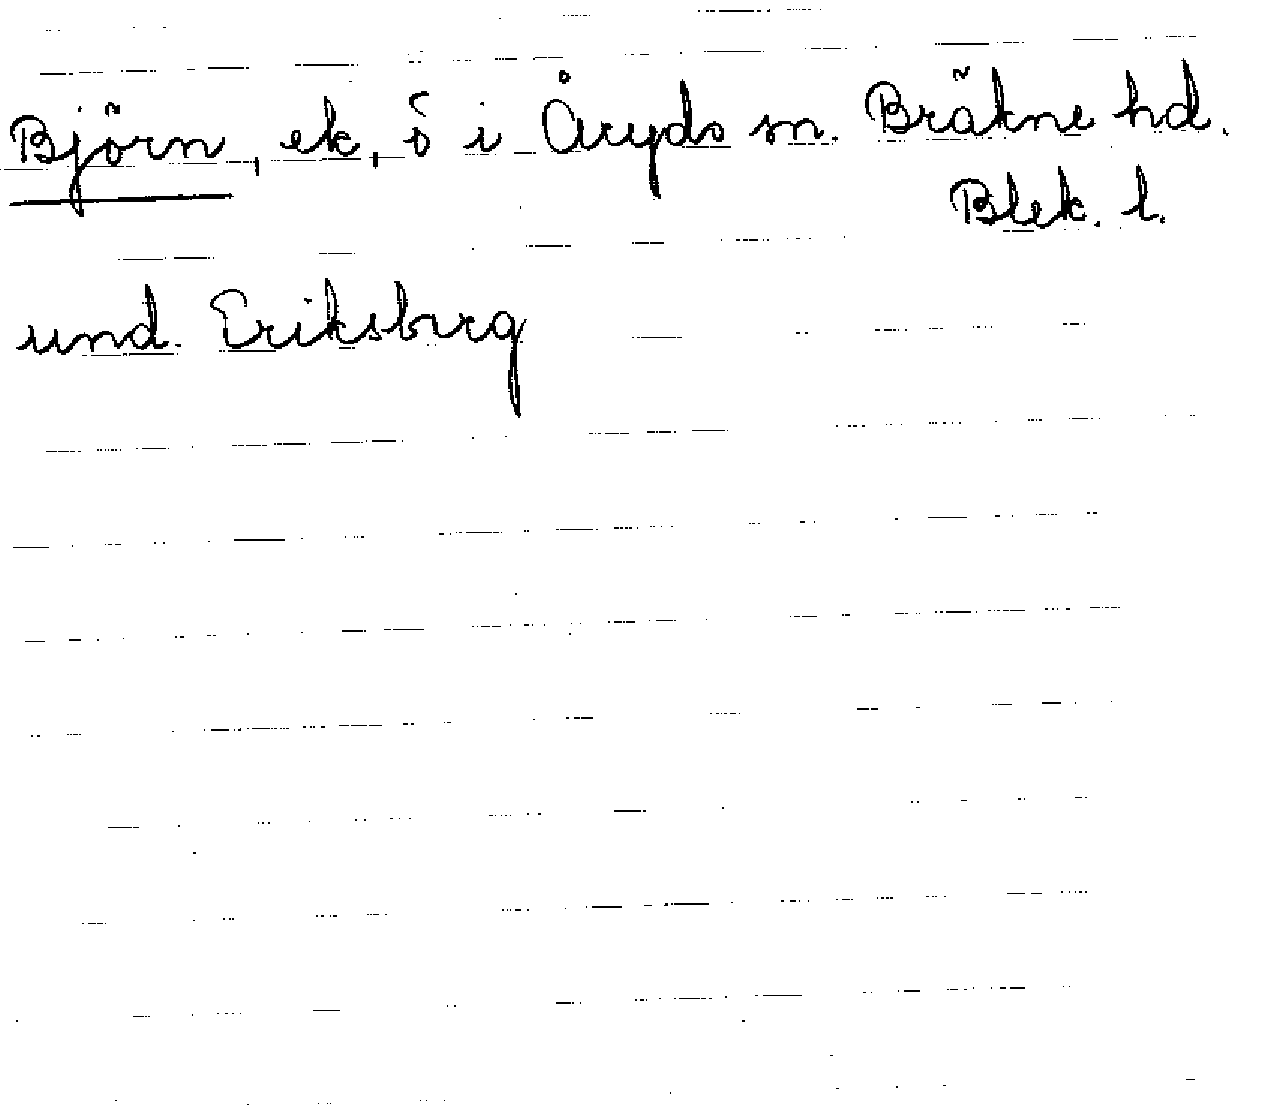 Björn, ek, ö i Åryds sn. Bräkne hd.
Blek. l.
und. Eriksberg